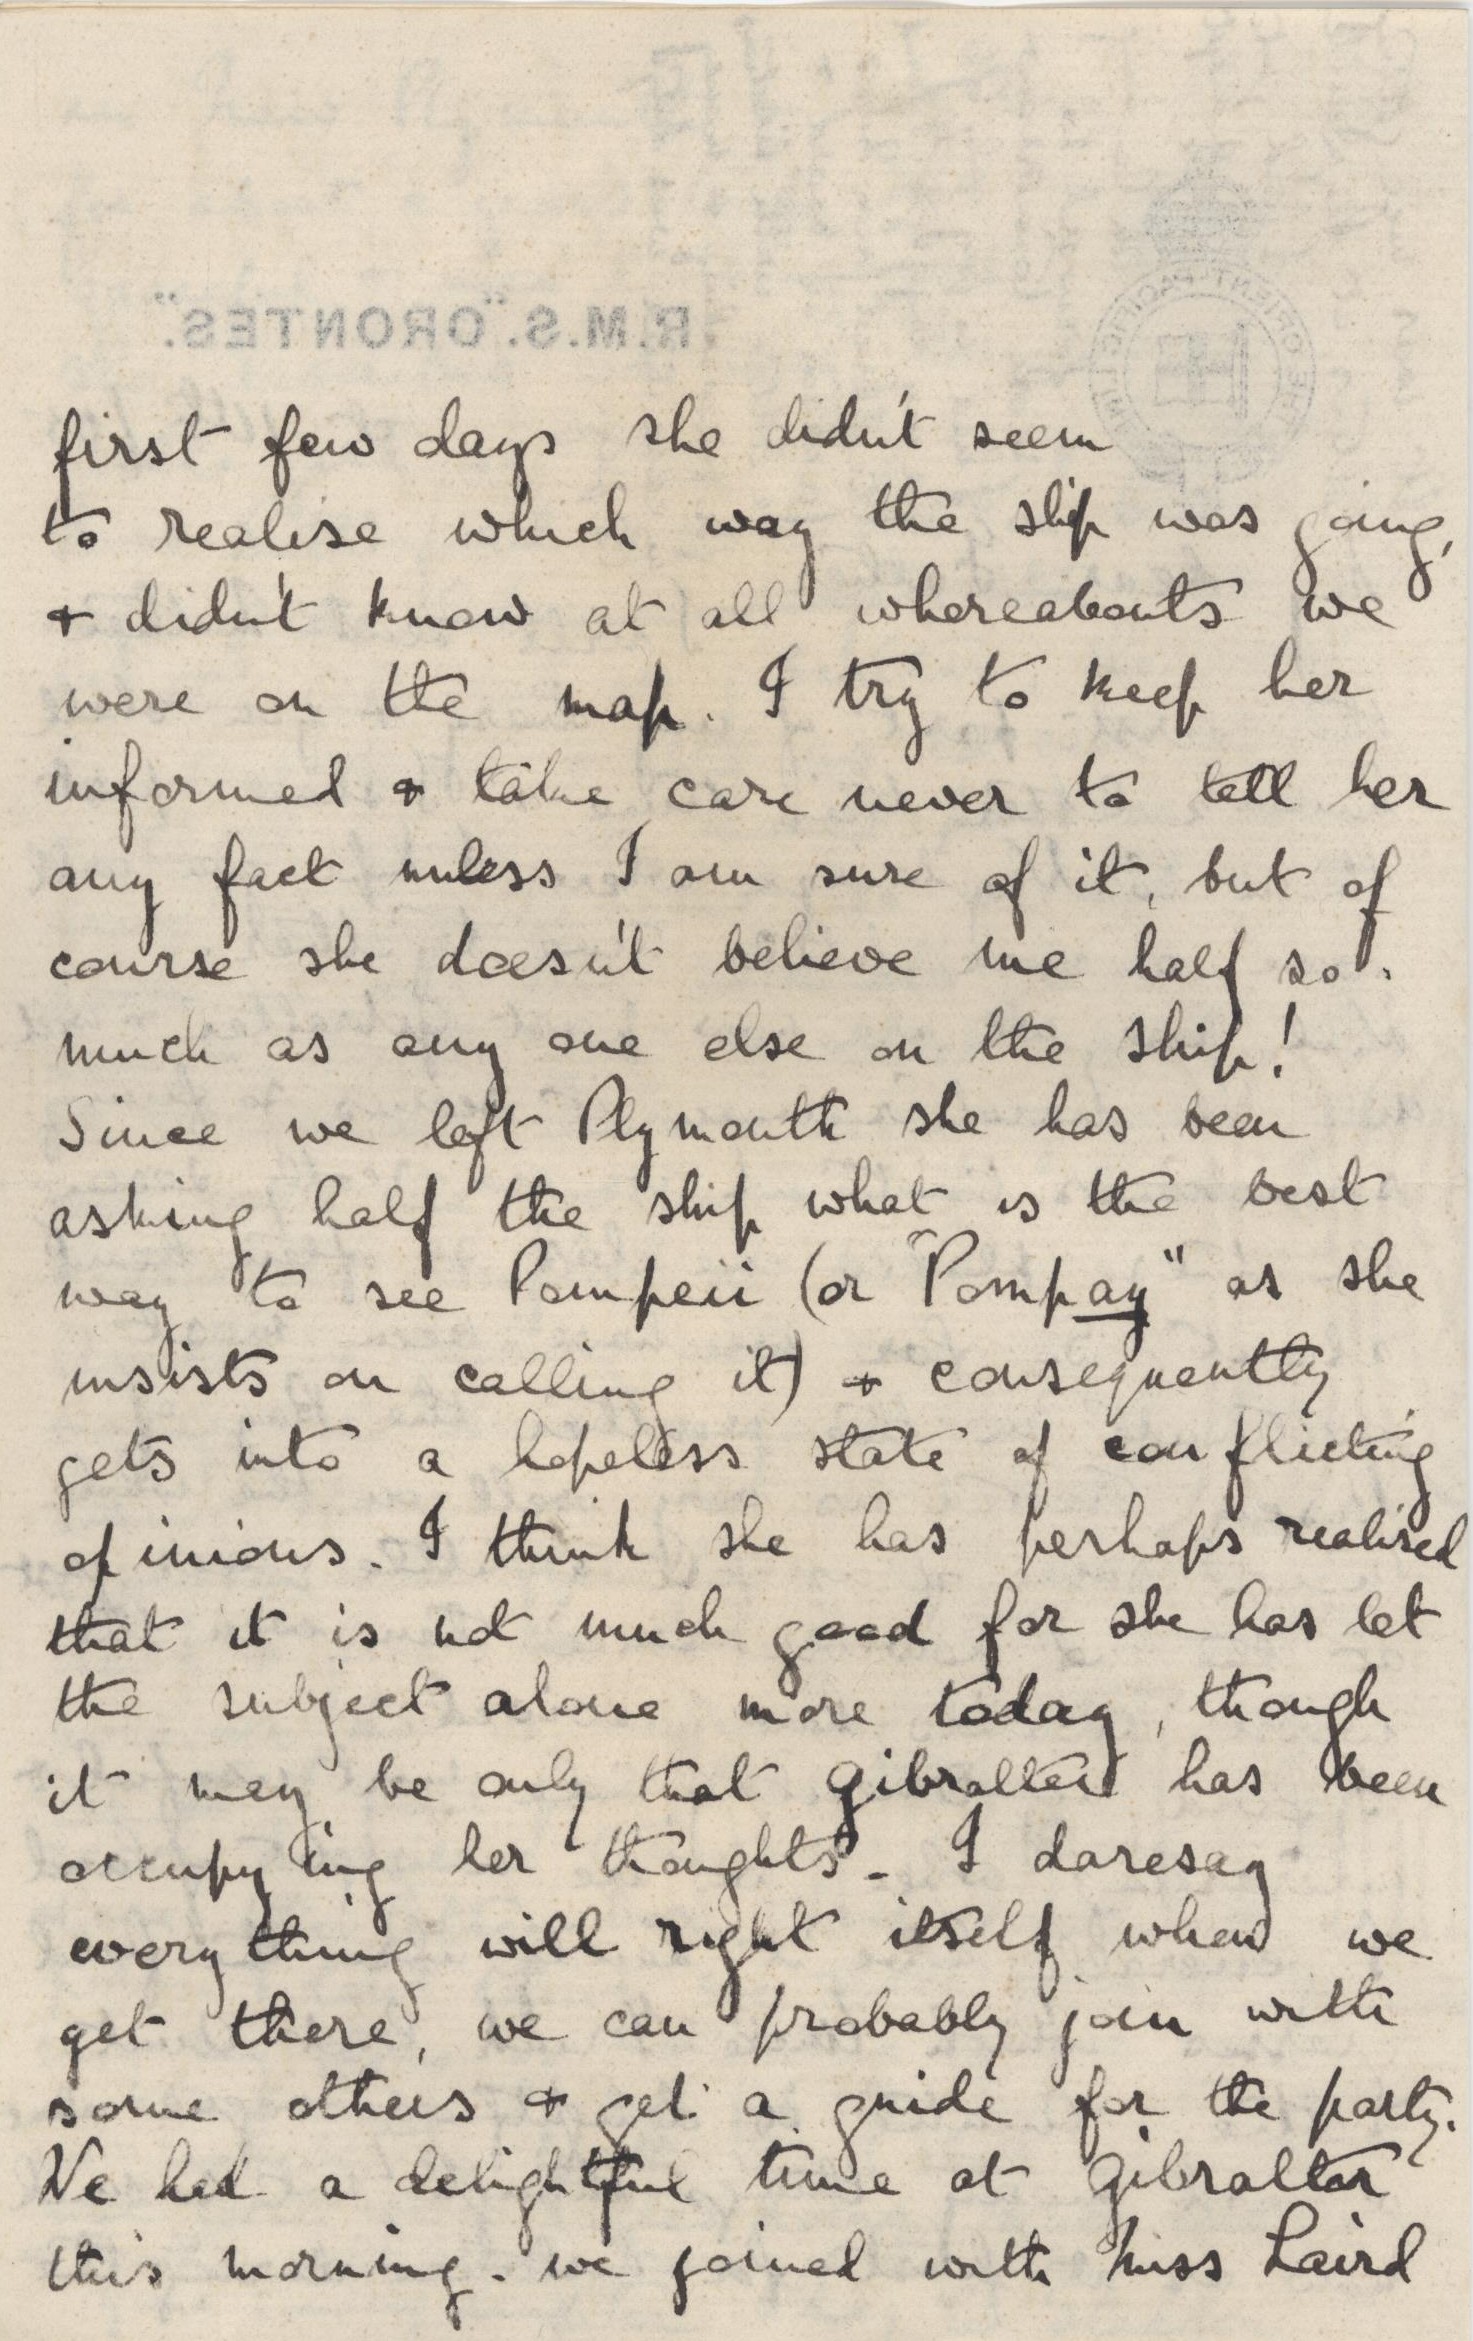 R.M.S. "ORONTES".
ORIENT-PACIFIC
first few days she didn't seem
to realise which way the ship was going,
& didn't know at all whereabouts we
were on the map. I try to keep her
informed & take care never to tell her
any fact unless I am sure of it, but of
course she doesn't believe me half so
much as any one else on the ship!
Since we left Plymouth she has been
asking half the ship what is the best
way to see Pompeii (or "Pompay" as she
insists on calling it) & consequently
gets into a hopeless state of conflicting
opinions. I think she has perhaps realised
that it is not much good for she has let
the subject alone more today, though
it may be only that Gibralter has been
occupying her thoughts. I daresay
everything will right itself when we
get there, we can probably join with
some others & get a guide for the party.
We had a delightful time at Gibraltar
this morning. We joined with Miss Laird